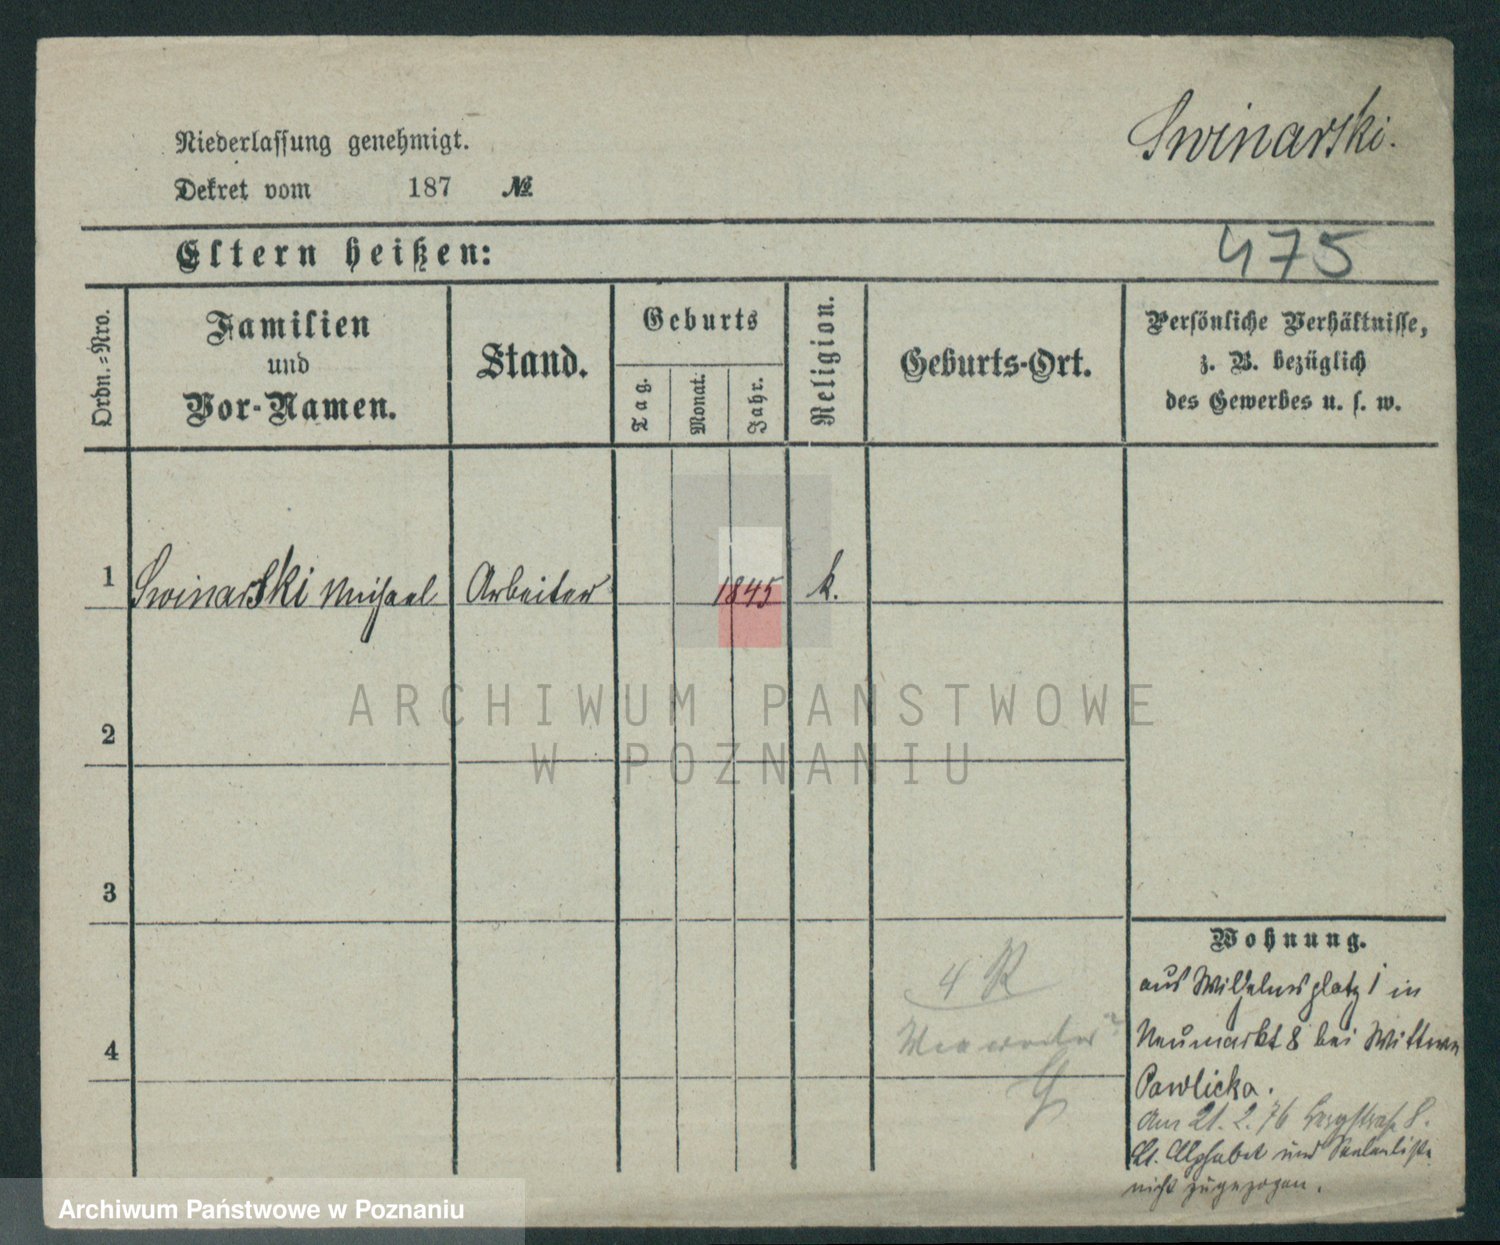 Swinarski.
Niederlassung genehmigt.
Dekret vom 187 №
Eltern heißen:
475
Ordn.-Nro.
Familien
und
Vor-Namen.
Stand.
Geburts
Tag.
Monat.
Jahr.
Religion.
Geburts-Ort.
Persönliche Verhältnisse,
z. B. bezüglich
des Gewerbes u. s. w.
1 Swinarski Michael Arbeiter 1845 k.
ARCHIWUM PAŃSTWOWE
W POZNANIU
2
3
4
4 R
Wohnung.
aus Wilhelmsplatz 1 in
Neumarkt 8 bei Wittwe
Pawlicka.
Am 21. 2. 76 Bergstraße 8.
Lt. Alphabet und Seelenliste
nicht zugezogen.
Archiwum Państwowe w Poznaniu